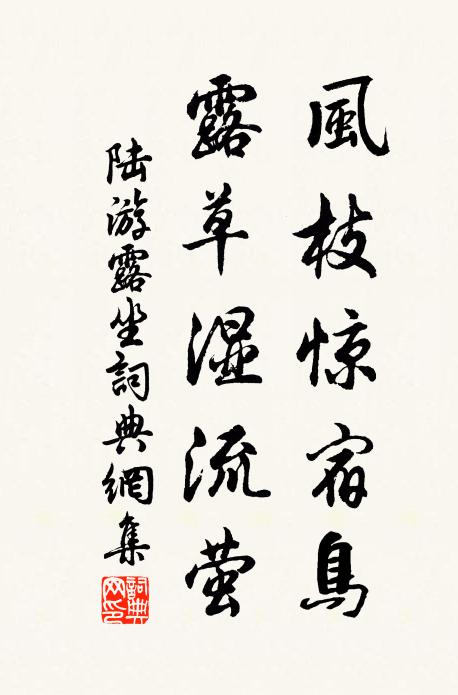 風枝惊宿鳥
露草湿流萤
陆游露坐詞典網集
詞典网印